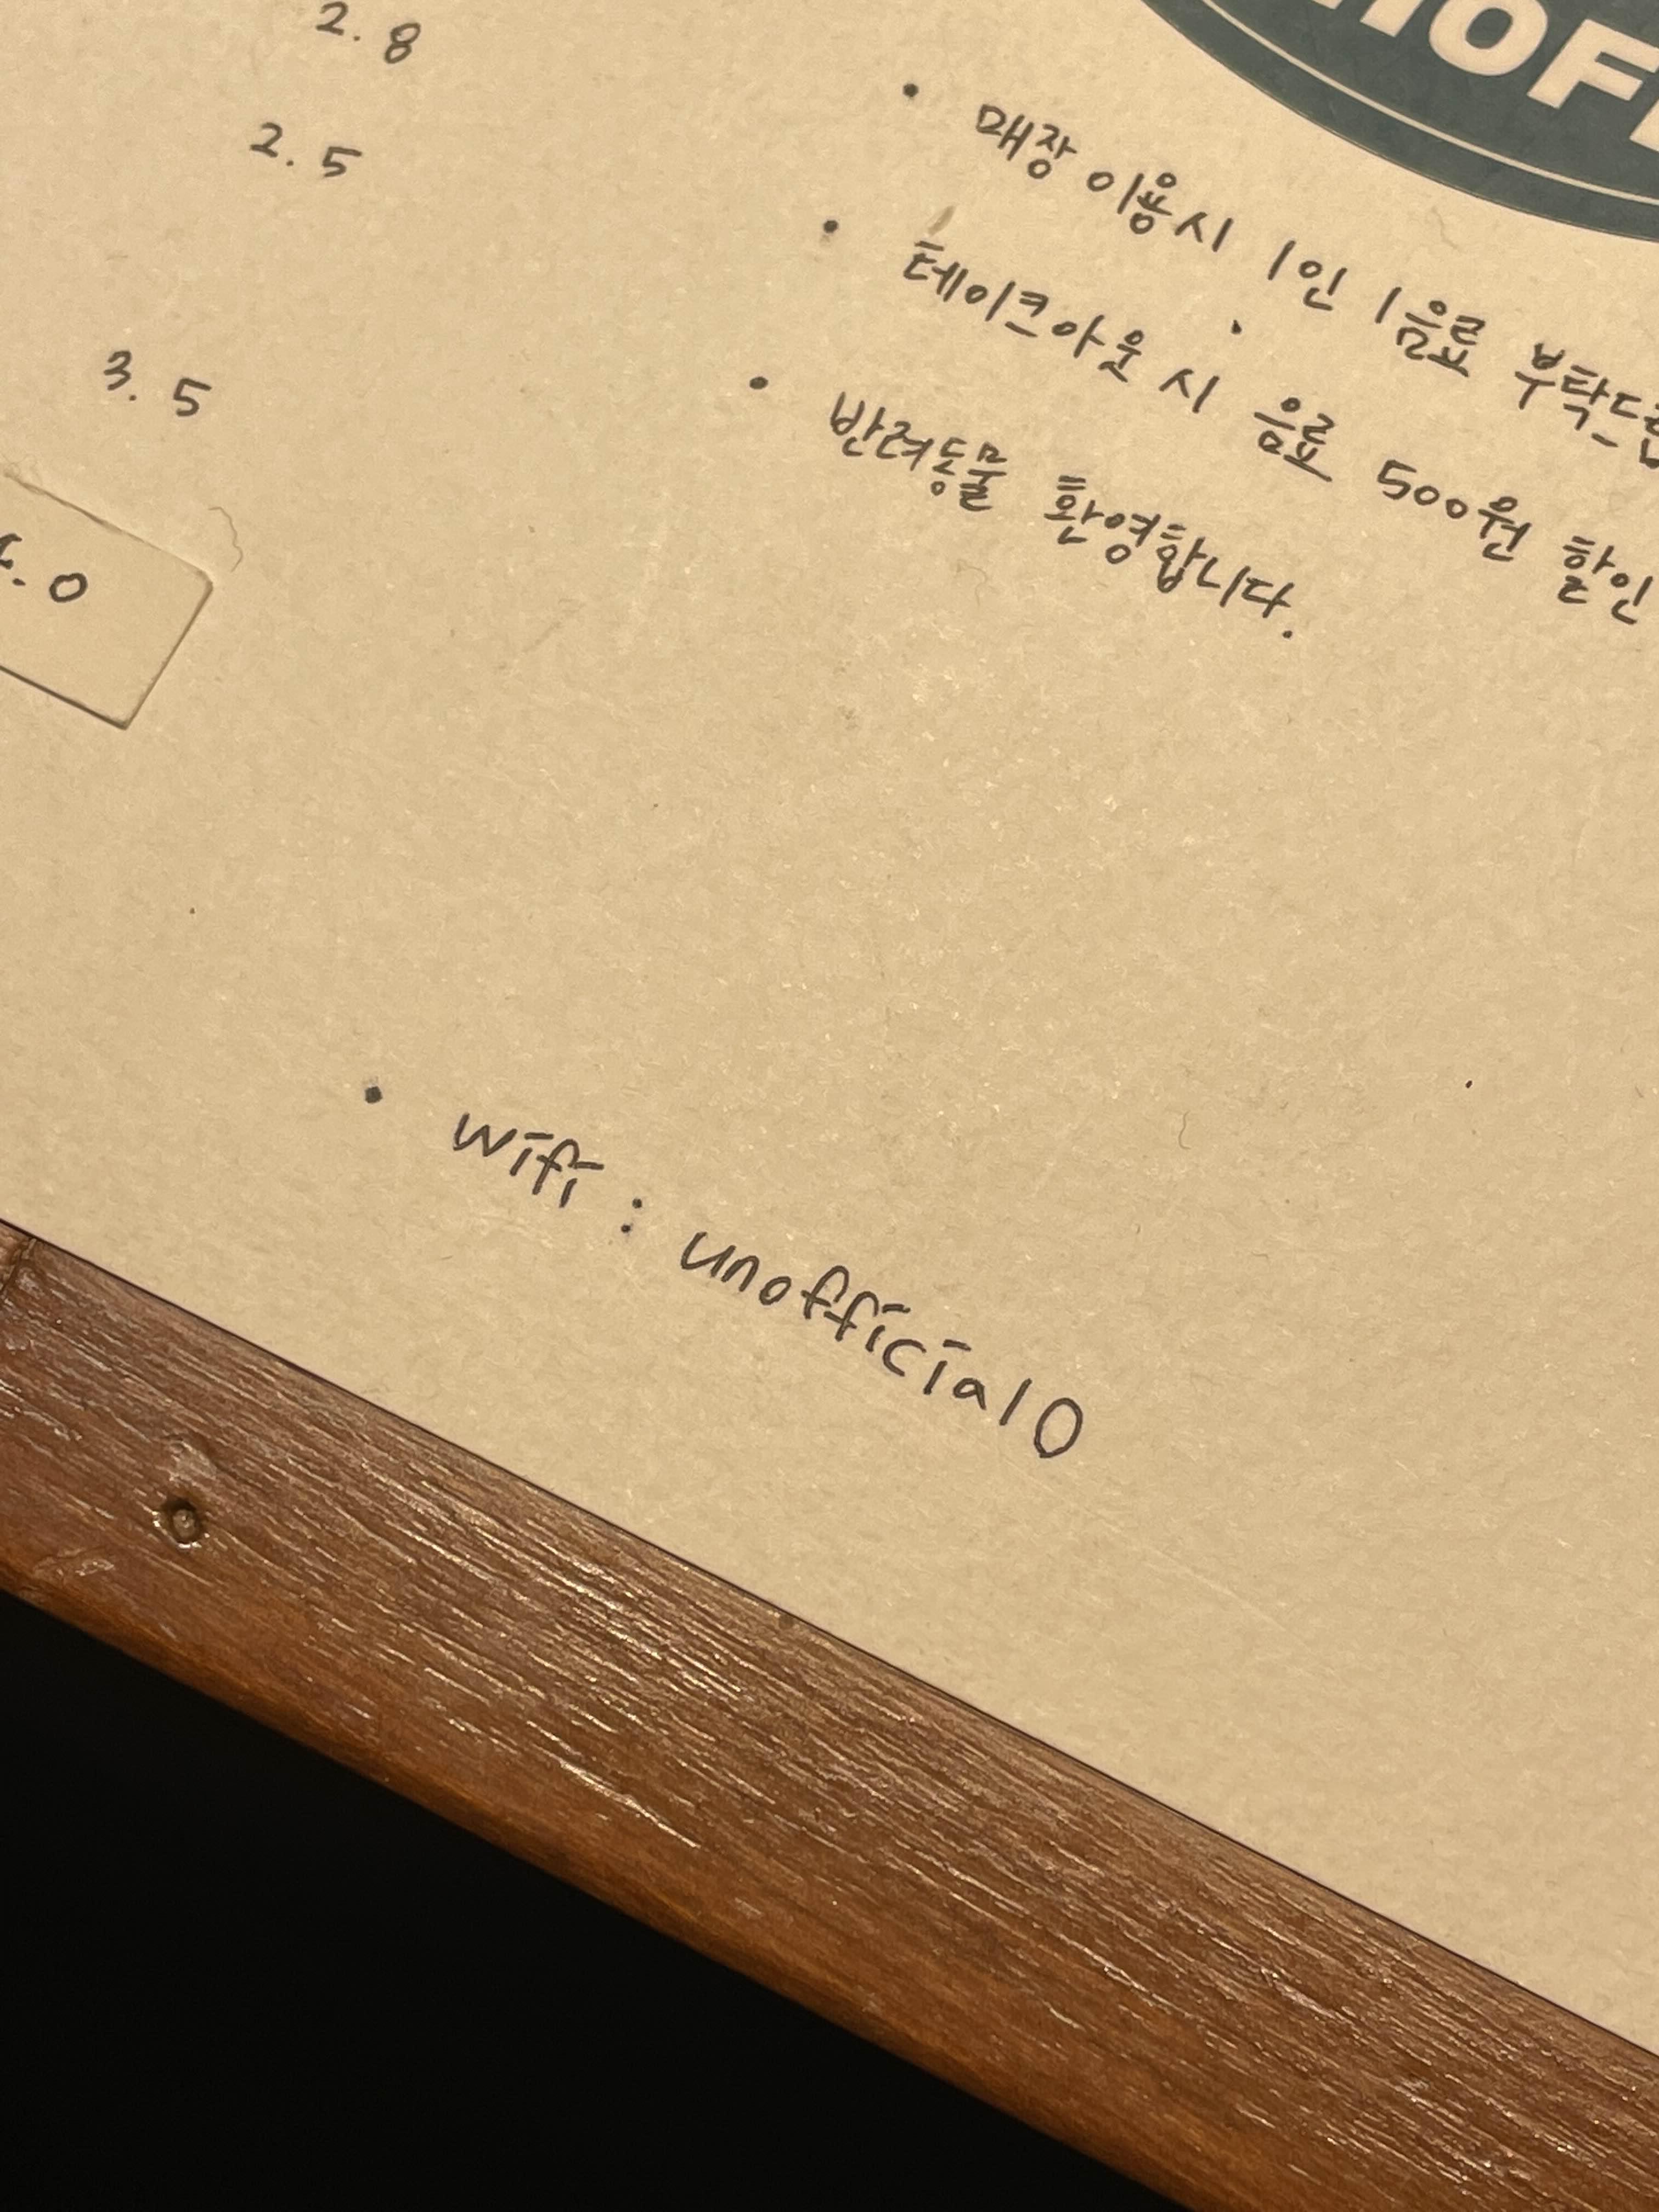 2.8
2.5
3.5
.0
• 매장 이용시 1인 1음료
• 테이크아웃 시 음료 500원 할인
• 반려동물 환영합니다.
• wifi : unofficial0